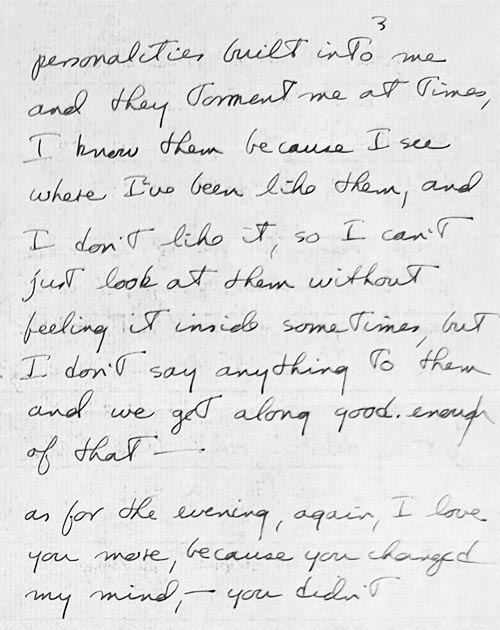 3
personalities built into me
and they torment me at times,
I know them because I see
where I've been like them, and
I don't like it, so I can't
just look at them without
feeling it inside sometimes, but
I don't say anything to them
and we get along good. enough
of that —
as for the evening, again, I love
you more, because you changed
my mind, — you didn't